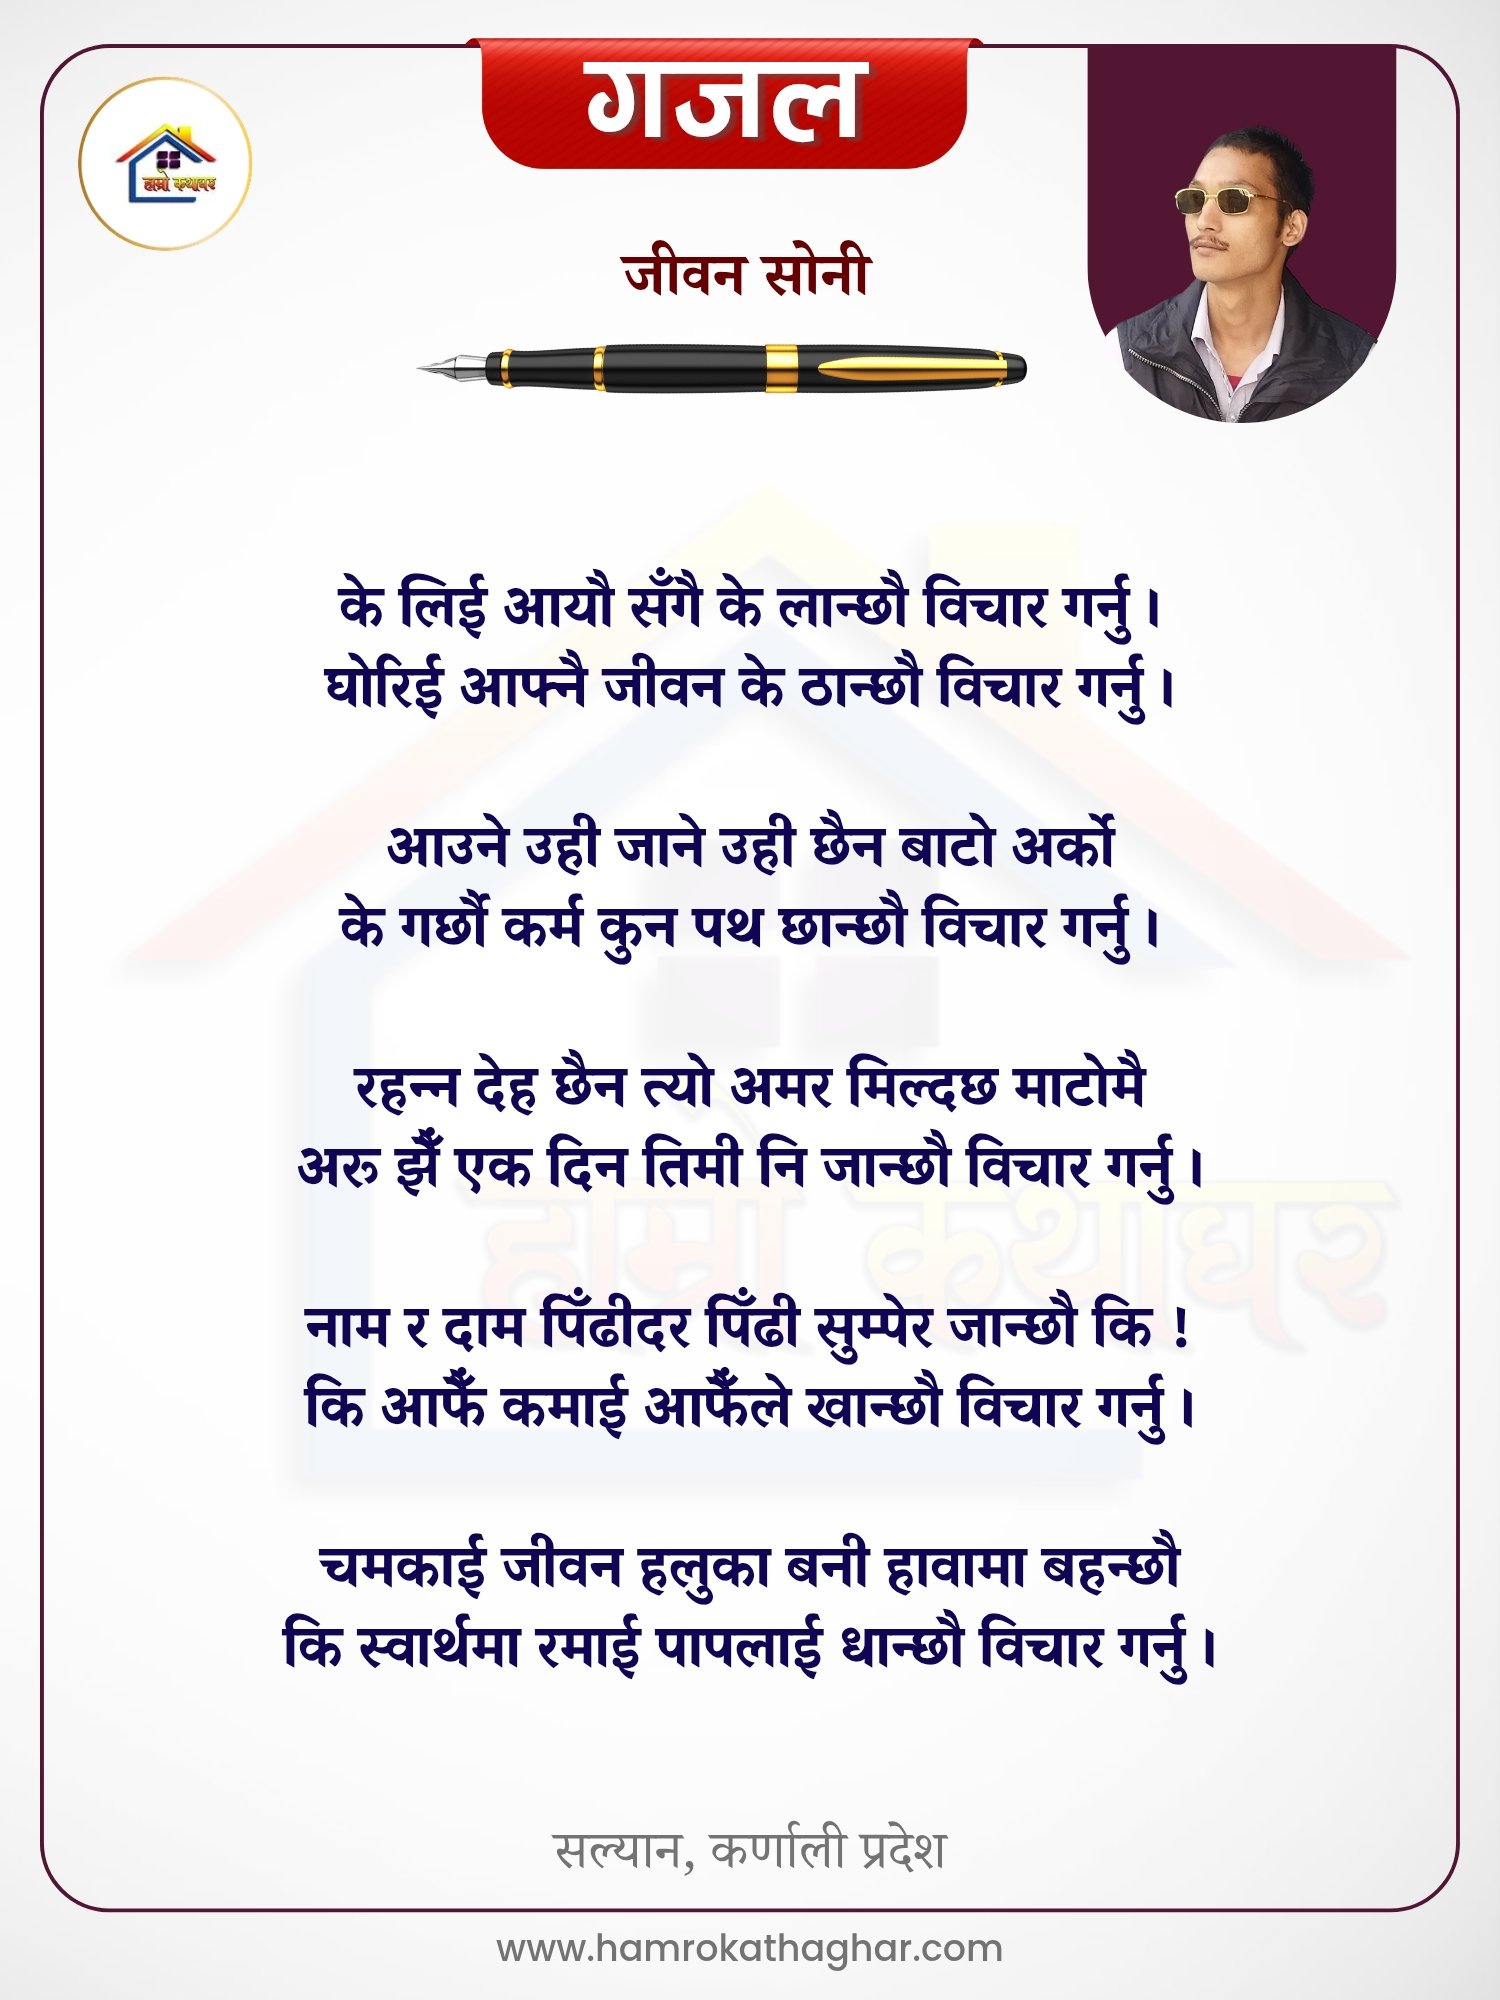 गजल
हाम्रो कथाघर
जीवन सोनी
के लिई आयौ सँगै के लान्छौ विचार गर्नु ।
घोरिई आफ्नै जीवन के ठान्छौ विचार गर्नु ।
आउने उही जाने उही छैन बाटो अर्को
के गर्छौ कर्म कुन पथ छान्छौ विचार गर्नु ।
रहन्न देह छैन त्यो अमर मिल्दछ माटोमै
अरु झैँ एक दिन तिमी नि जान्छौ विचार गर्नु ।
हाम्रो कथाघर
नाम र दाम पिँढीदर पिँढी सुम्पेर जान्छौ कि !
कि आफैँ कमाई आफैँले खान्छौ विचार गर्नु ।
चमकाई जीवन हलुका बनी हावामा बहन्छौ
कि स्वार्थमा रमाई पापलाई धान्छौ विचार गर्नु ।
सल्यान, कर्णाली प्रदेश
www.hamrokathaghar.com